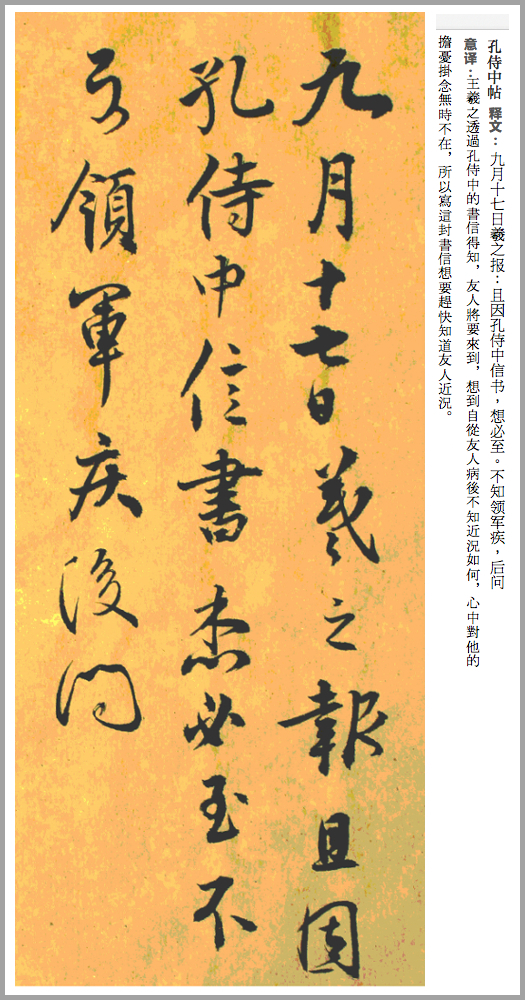 孔侍中帖 释文：九月十七日羲之报：且因孔侍中信书，想必至。不知领军疾，后问
意译：王羲之透過孔侍中的書信得知，友人將要來到，想到自從友人病後不知近況如何，心中對他的
擔憂掛念無時不在，所以寫這封書信想要趕快知道友人近況。
九月十七日羲之報且因
孔侍中信書想必至不
知領軍疾後問